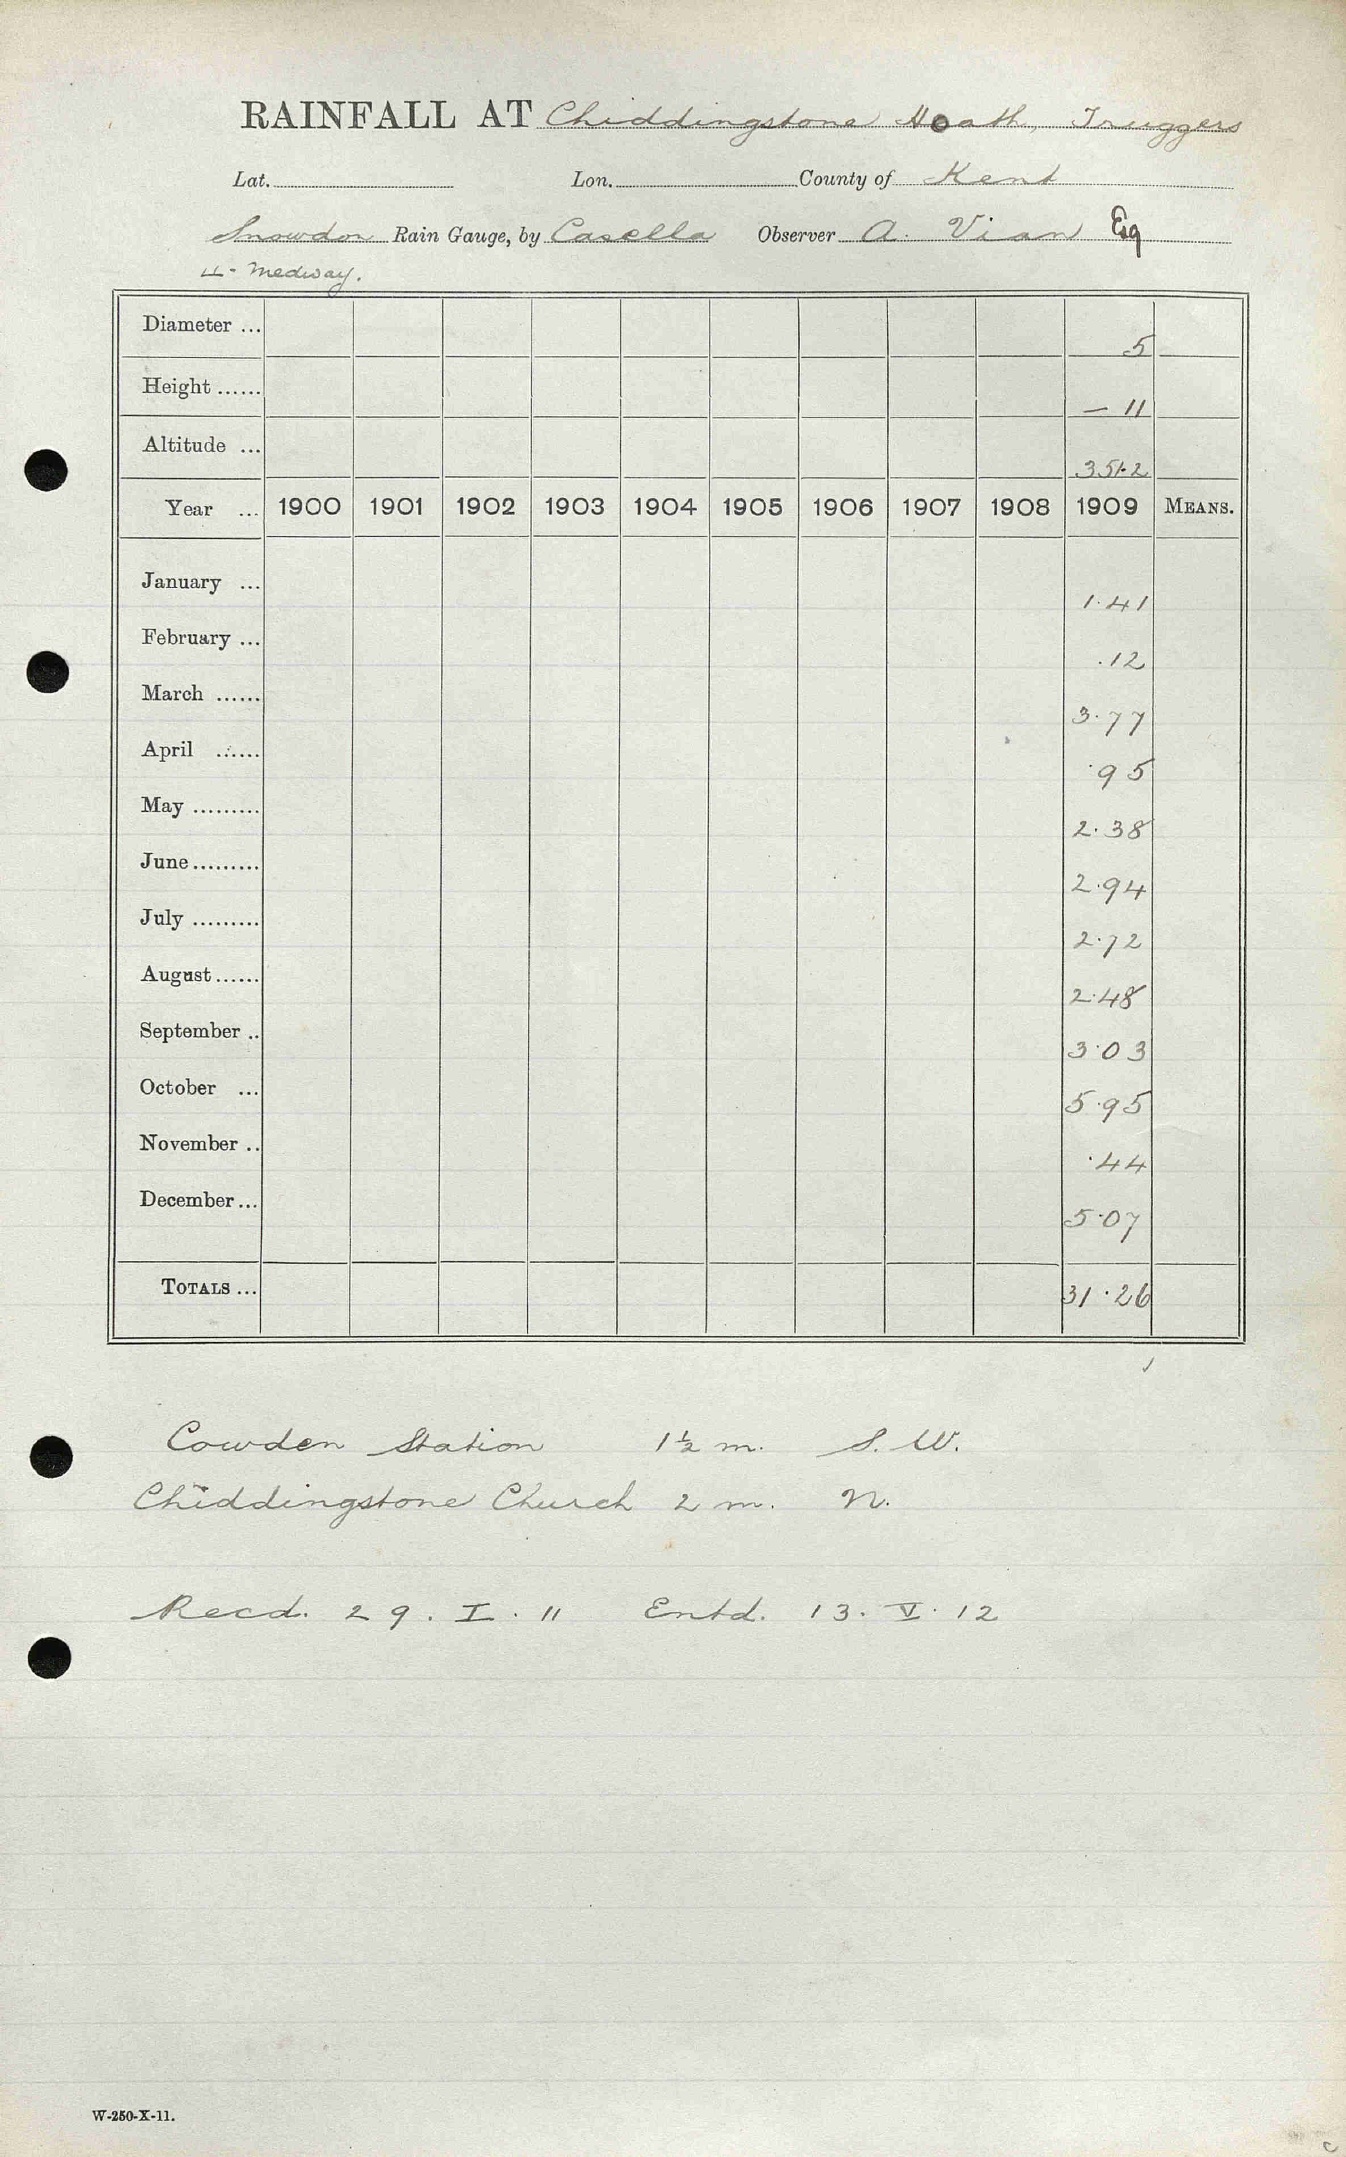 RAINFALL AT Chiddingstone Hoath, Truggers
Lat. Lon. County of Kent
Snowdon Rain Gauge, by Casella Observer A. Vian Esq
Medway.
Diameter ... 5
Height ...... — 11
Altitude ... 351.2
Year ... 1900 1901 1902 1903 1904 1905 1906 1907 1908 1909 MEANS.
January ... 1.41
February ... .12
March ...... 3.77
April ...... .95
May ......... 2.38
June ......... 2.94
July ......... 2.72
August ...... 2.48
September .. 3.03
October ... 5.95
November .. .44
December ... 5.07
TOTALS ... 31.26
Cowden Station 1½ m. S. W.
Chiddingstone Church 2 m. N.
Recd. 29. I. 11 Entd. 13. V. 12
W-250-X-11.